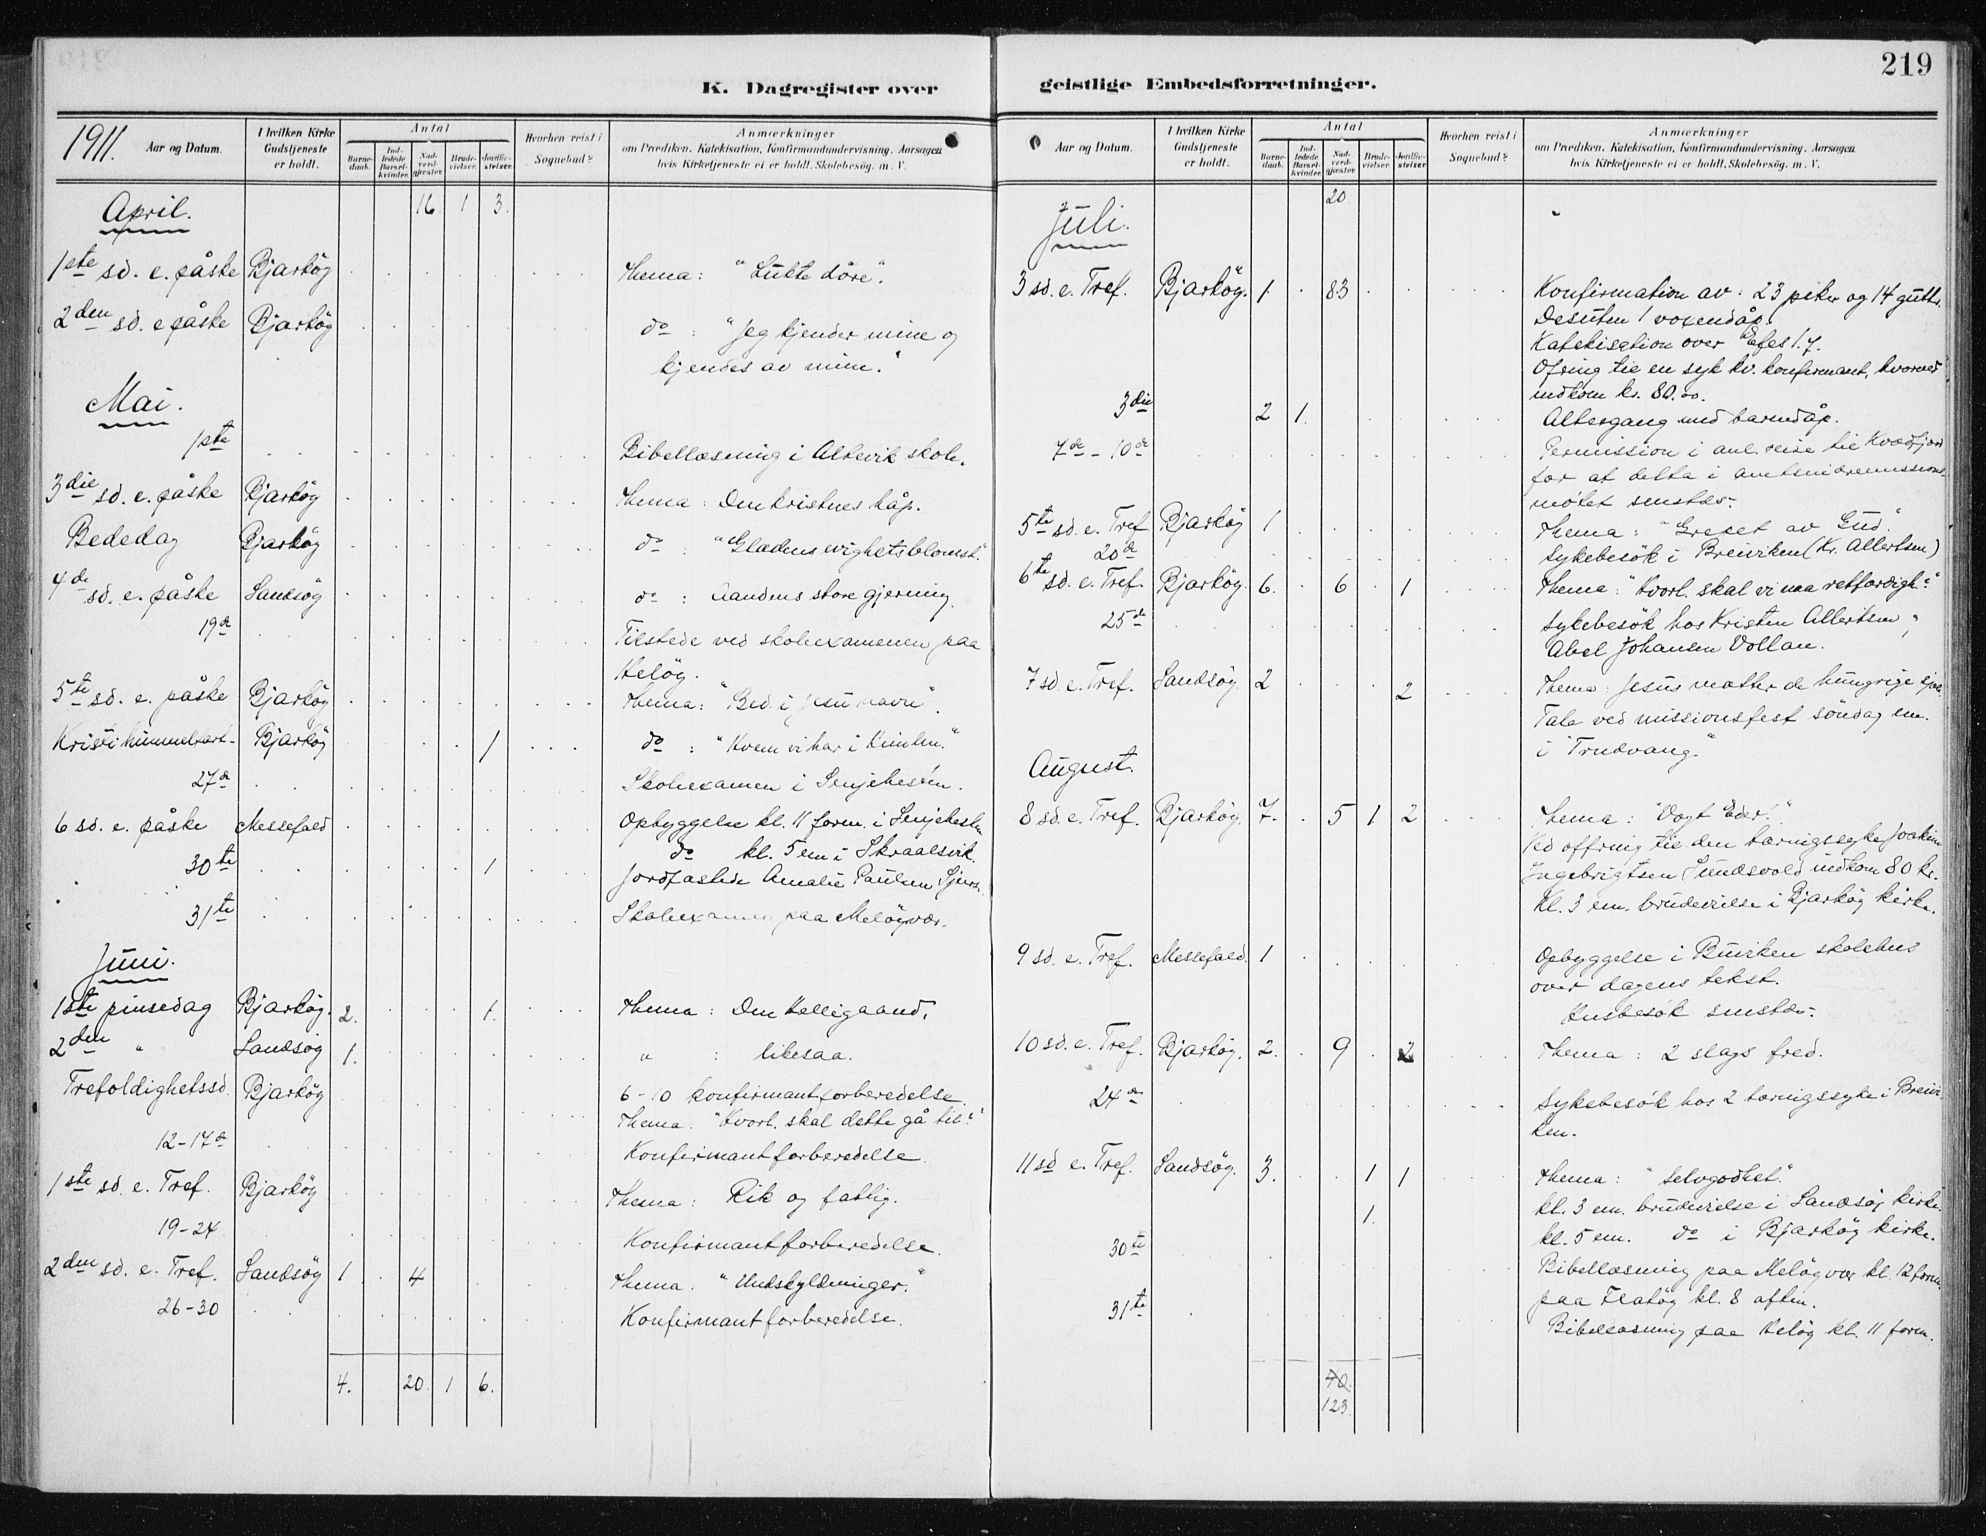 K. Dagregister over
1911.
Aar og Datum.
I hvilken Kirke Gudstjeneste er holdt.
Antal
Barnedaab.
Indledede Barselkvinder.
Nadverdgjæster.
Brudevielser.
Jordfæstelser.
Hvorhen reist i Sognebud?
Anmærkninger
om Prædiken, Katekisation, Konfirmandundervisning, Aarsagen
hvis Kirketjeneste ei er holdt, Skolebesög, m. V.
April. 16. 1 3.
1ste sd. e. påske Bjarköy Thema: "Lukte döre".
2den sd. e påske Bjarköy do : "Jeg kjender mine og
kjendes av mine."
Mai.
1ste Bibellæsning i Altevik skole.
3die sd. e. påske Bjarköy Thema: Den kristnes håp.
Bededag Bjarköy do : "Glædens evighetsblomst."
4de sd. e. påske Sandsöy do : Aandens store gjerning.
19de Tilstede ved skoleexamenen paa
Helöy.
5te sd. e. påske Bjarköy Thema: "Bed i Jesu navn".
Kristi himmelfart- Bjarköy 1 do : "Hvem vi har i himlen."
27de Skoleexamen i Senjehesten.
6 sd. e. påske Messefald Opbyggelse kl. 11 form. i Senjehesten
do kl. 5 em i Skraalsvik.
30te 1 Jordfæstede Amalie Paulsen
31te Skoleexamen paa Melöyvær.
Juni.
1ste pinsedag Bjarköy. 2. 1. Thema: Den Helligaand.
2den " Sandsöy 1. " : likesaa.
Trefoldighetssd. Bjarköy 6-10 konfirmantforberedelse.
Thema: "Hvorl. skal dette gå til?"
12-17de Konfirmantforberedelse
1ste sd. e. Tref. Bjarköy Thema: Rik og fattig.
19-24 Konfirmantforberedelse.
2den sd. e. Tref. Sandsöy 1 4 Thema: "Undskyldninger."
26-30 Konfirmantforberedelse.
4. 20. 1 6.
219
geistlige Embedsforretninger.
Aar og Datum.
I hvilken Kirke Gudstjeneste er holdt.
Antal
Barnedaab.
Indledede Barselkvinder.
Nadverdgjæster.
Brudevielser.
Jordfæstelser.
Hvorhen reist i Sognebud?
Anmærkninger
om Prædiken, Katekisation, Konfirmandundervisning, Aarsagen
hvis Kirketjeneste ei er holdt, Skolebesög, m. V.
Juli. 20
3 sd. e. Tref. Bjarköy. 1. 83 Konfirmation av: 23 piker og 14 gutter.
Desuten 1 voxendåp.
Katekisation over Efes 1.7.
Ofring til en syk kv. konfirmant, hvorved
indkom kr. 80.00.
3die 2 1. Altergang med barnedåp.
7de - 10de Permission i anl. reise til Kvædfjord
for at delta i amtsindremissions-
mötet smstds.
5te sd. e. Tref Bjarköy 1 Thema: "Grepet av Gud."
20de Sykebesök i Breiviken (Kr. Allertsen)
6te sd. e. Tref. Bjarköy. 6. 6 1 Thema: "Hvorl. skal vi naa retfærdigh.?"
25de Sykebesök hos Kristen Allertsen,
Abel Johansen Vollan.
7 sd. e. Tref. Sandsöy. 2 2 Thema: Jesus mætter de hungrige sjæle.
Tale ved missionsfest söndag em.
i "Trudvang."
August.
8 sd. e. Tref. Bjarköy. 7. 5 1 2 Thema: "Vogt Eder!"
Ved offring til den tæringssyke Joakim
Ingebrigtsen Sundsvold indkom 80 kr.
Kl. 3 em. brudevielse i Bjarköy kirke.
9 sd. e. Tref. Messefald. 1 Opbyggelse i skolehus
over dagens tekst.
Husbesök smstds.
10 sd. e. Tref. Bjarköy. 2. 9 2 Thema: 2 slags fred.
24de Sykebesök hos 2 tæringssyke i Breivi-
ken.
11 sd e. Tref. Sandsöy. 3. 1 1 Thema: "Selvgodhet."
kl. 3 em. brudevielse i Sandsöy kirke.
1. kl. 5 em. do i Bjarköy kirke.
30te Bibellæsning paa Melöyvær kl. 12 form.
paa Flatöy kl. 8 aften.
31te Bibellæsning paa Helöy kl. 11 form.
70.
123.